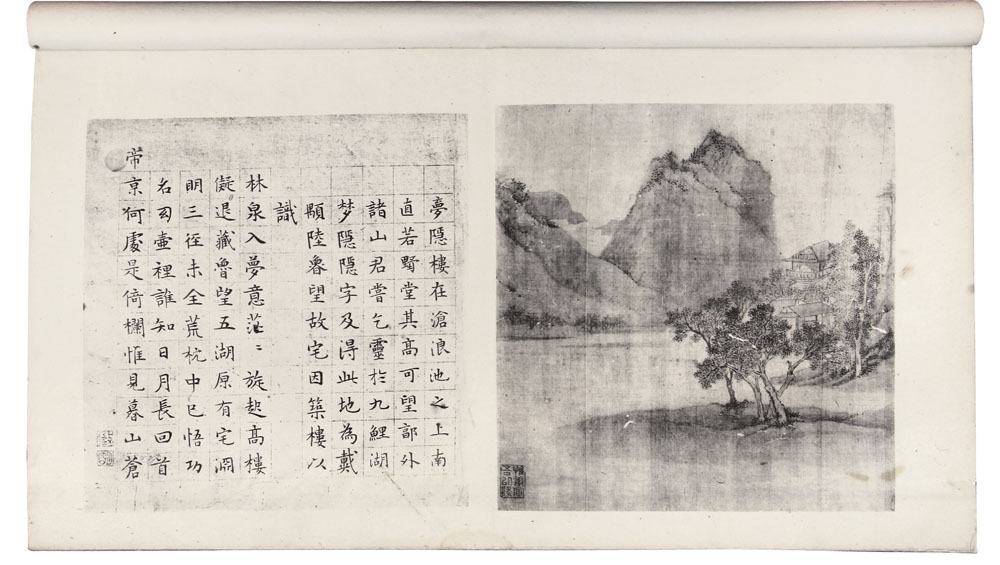 夢隱樓在滄浪池之上南
直若墅堂其高可望郭外
諸山君嘗乞靈於九鯉湖
梦隱隱字及得此地為戴
顒陸魯望故宅因築樓以
識
林泉入夢意茫〻旋起高樓
儗退藏魯望五湖原有宅淵
明三徑未全荒枕中已悟功
名幻壷裡誰知日月長回首
帝京何處是倚欄惟見暮山蒼